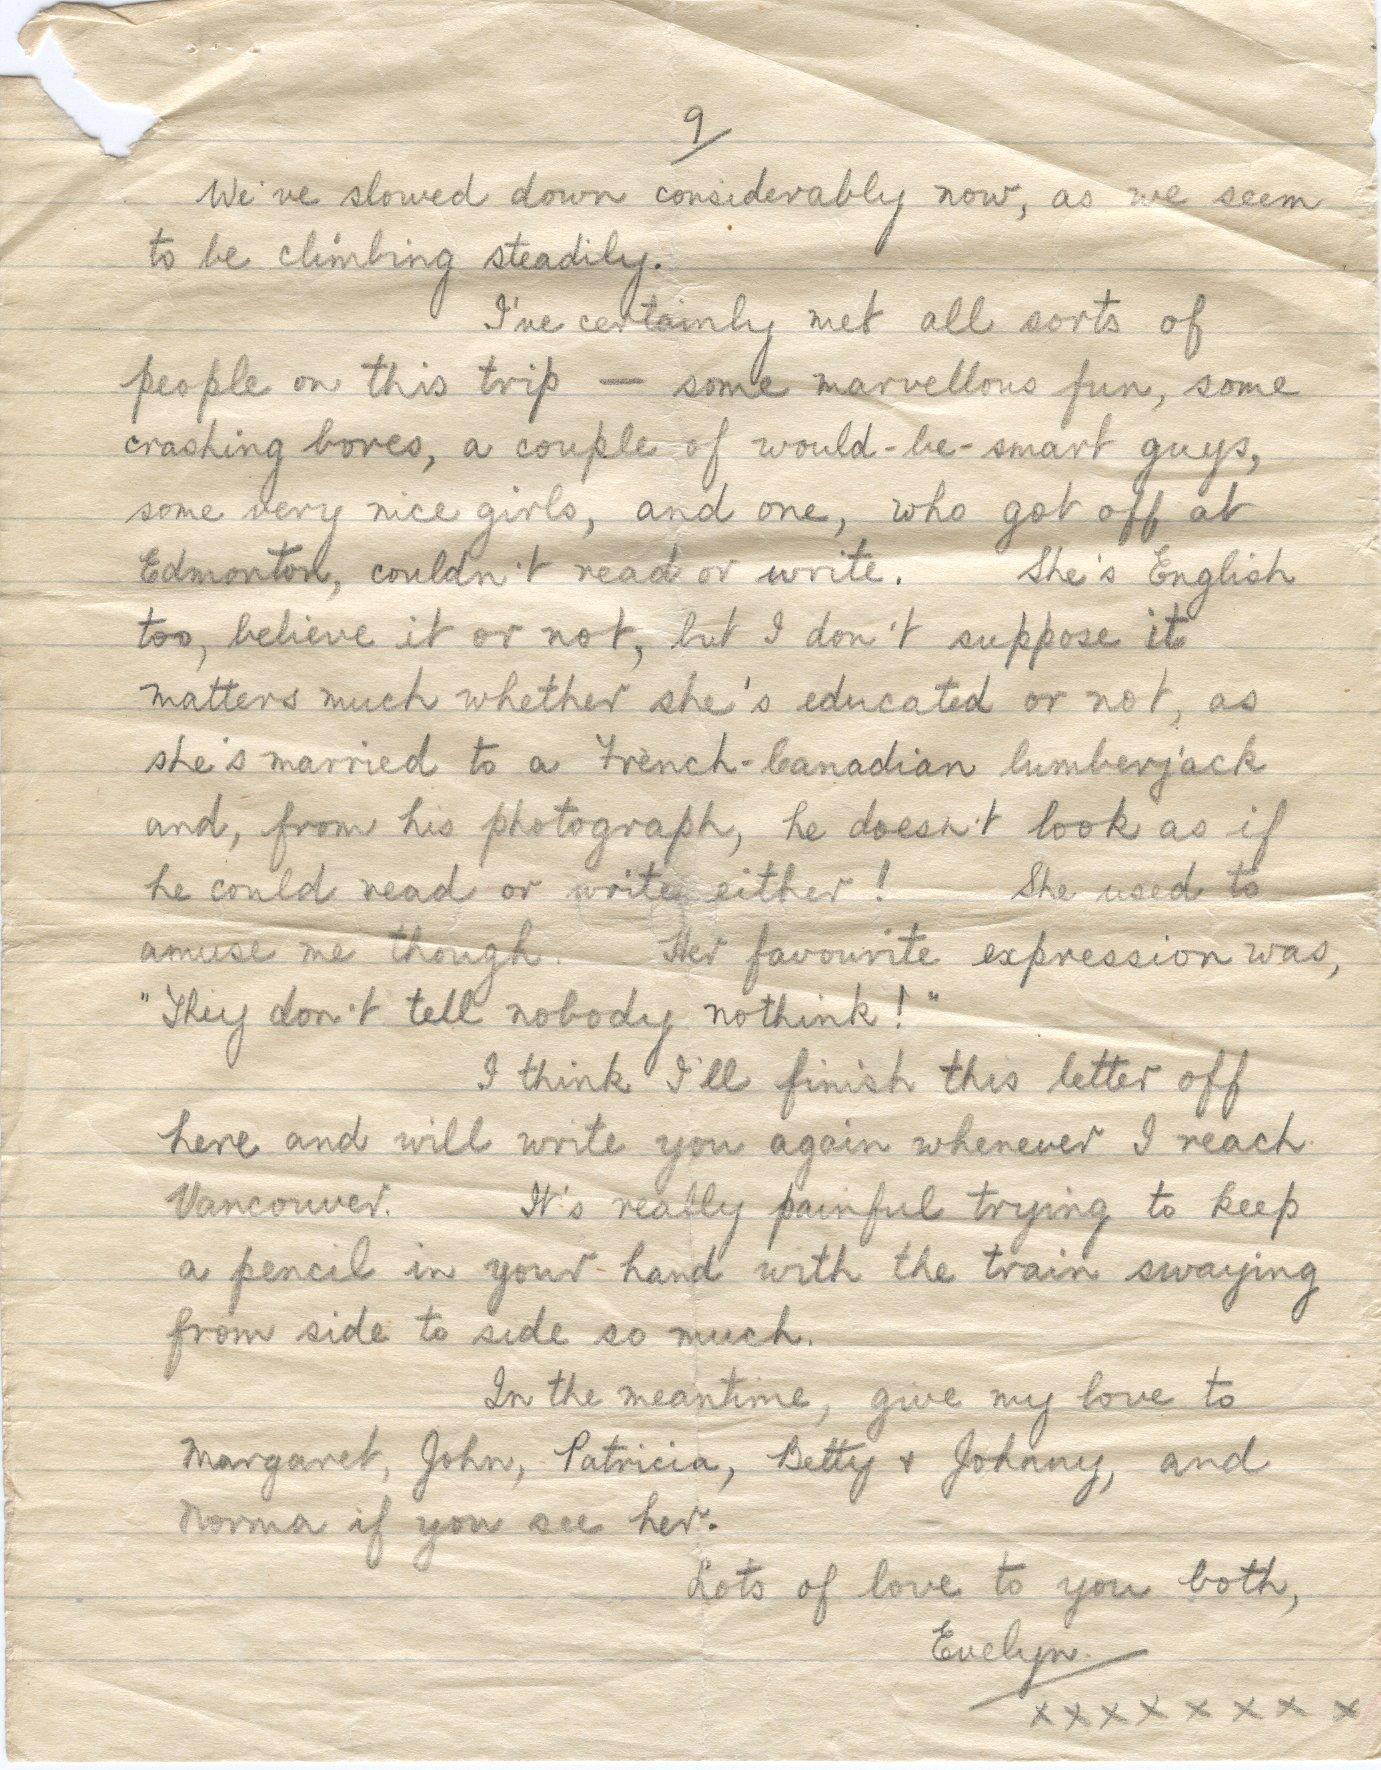 9
We've slowed down considerably now, as we seem
to be climbing steadily.
I've certainly met all sorts of
people on this trip — some marvellous fun, some
crashing bores, a couple of would-be-smart guys,
some very nice girls, and one, who got off at
Edmonton, couldn't read or write. She's English
too, believe it or not, but I don't suppose it
matters much whether she's educated or not, as
she's married to a French-Canadian lumberjack
and, from his photograph, he doesn't look as if
he could read or write either! She used to
amuse me though. Her favourite expression was,
"They don't tell nobody nothink!"
I think I'll finish this letter off
here and will write you again whenever I reach
Vancouver. It's really painful trying to keep
a pencil in your hand with the train swaying
from side to side so much.
In the meantime, give my love to
Margaret, John, Patricia, Betty & Johnny, and
Norma if you see her.
Lots of love to you both,
Evelyn.
x x x x x x x x